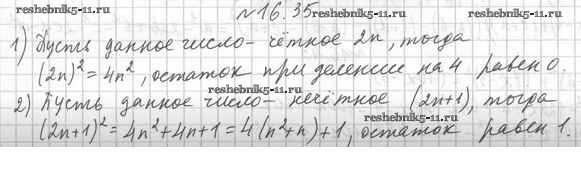 reshebnik5-11.ru № 16.35 reshebnik5-11.ru
1) Пусть данное число - чётное 2n, тогда
(2n)² = 4n², остаток при делении на 4 равен 0.
reshebnik5-11.ru
2) Пусть данное число - нечётное (2n+1), тогда
(2n+1)² = 4n²+4n+1 = 4(n²+n)+1, остаток равен 1.
reshebnik5-11.ru reshebnik5-11.ru